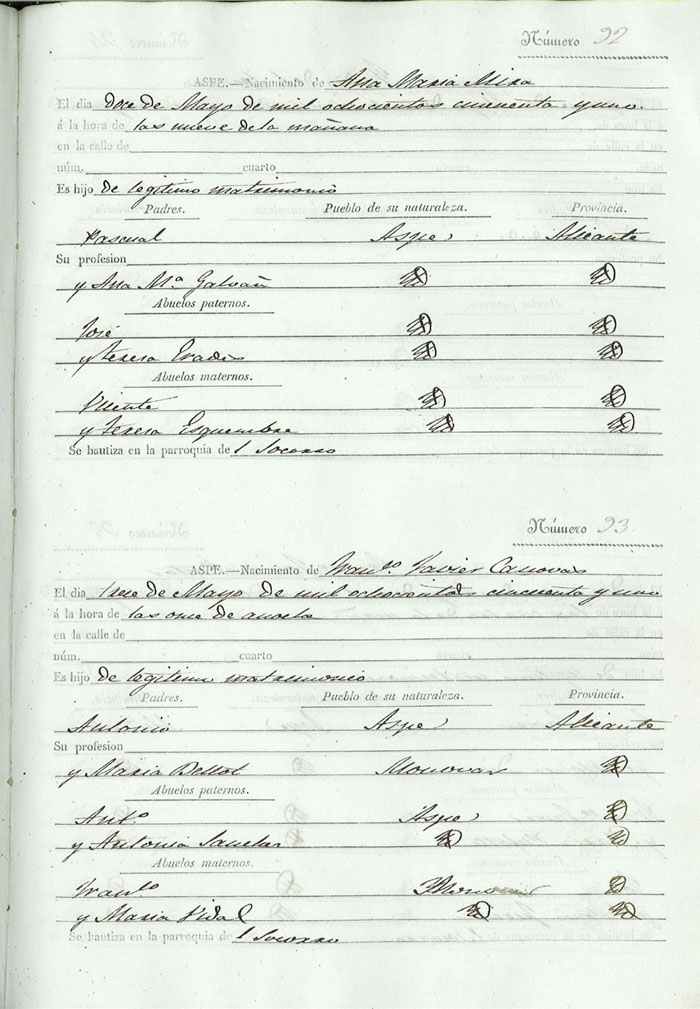 Número 92
ASPE.—Nacimiento de Ana Maria Mira
El dia doce de Mayo de mil ochocientos cincuenta y uno.
á la hora de las nueve de la mañana
en la calle de
núm. cuarto
Es hijo de legitimo matrimonio
Padres. Pueblo de su naturaleza. Provincia.
Pascual Aspe Alicante
Su profesion
y Ana Mª Galvañ
Abuelos paternos.
José
y Teresa
Abuelos maternos.
Vicente
y Teresa Esquembre
Se bautiza en la parroquia de l Socorro
Número 93
ASPE.—Nacimiento de Franº Javier Canovas
El dia trece de Mayo de mil ochocientos cincuenta y uno
á la hora de las once de
en la calle de
núm. cuarto
Es hijo de legitimo matrimonio
Padres. Pueblo de su naturaleza. Provincia.
Antonio Aspe Alicante
Su profesion
y Maria Bellot Monovar
Abuelos paternos.
Antº Aspe
y Antonia
Abuelos maternos.
Franº Monovar
y Maria Vidal
Se bautiza en la parroquia de l Socorro